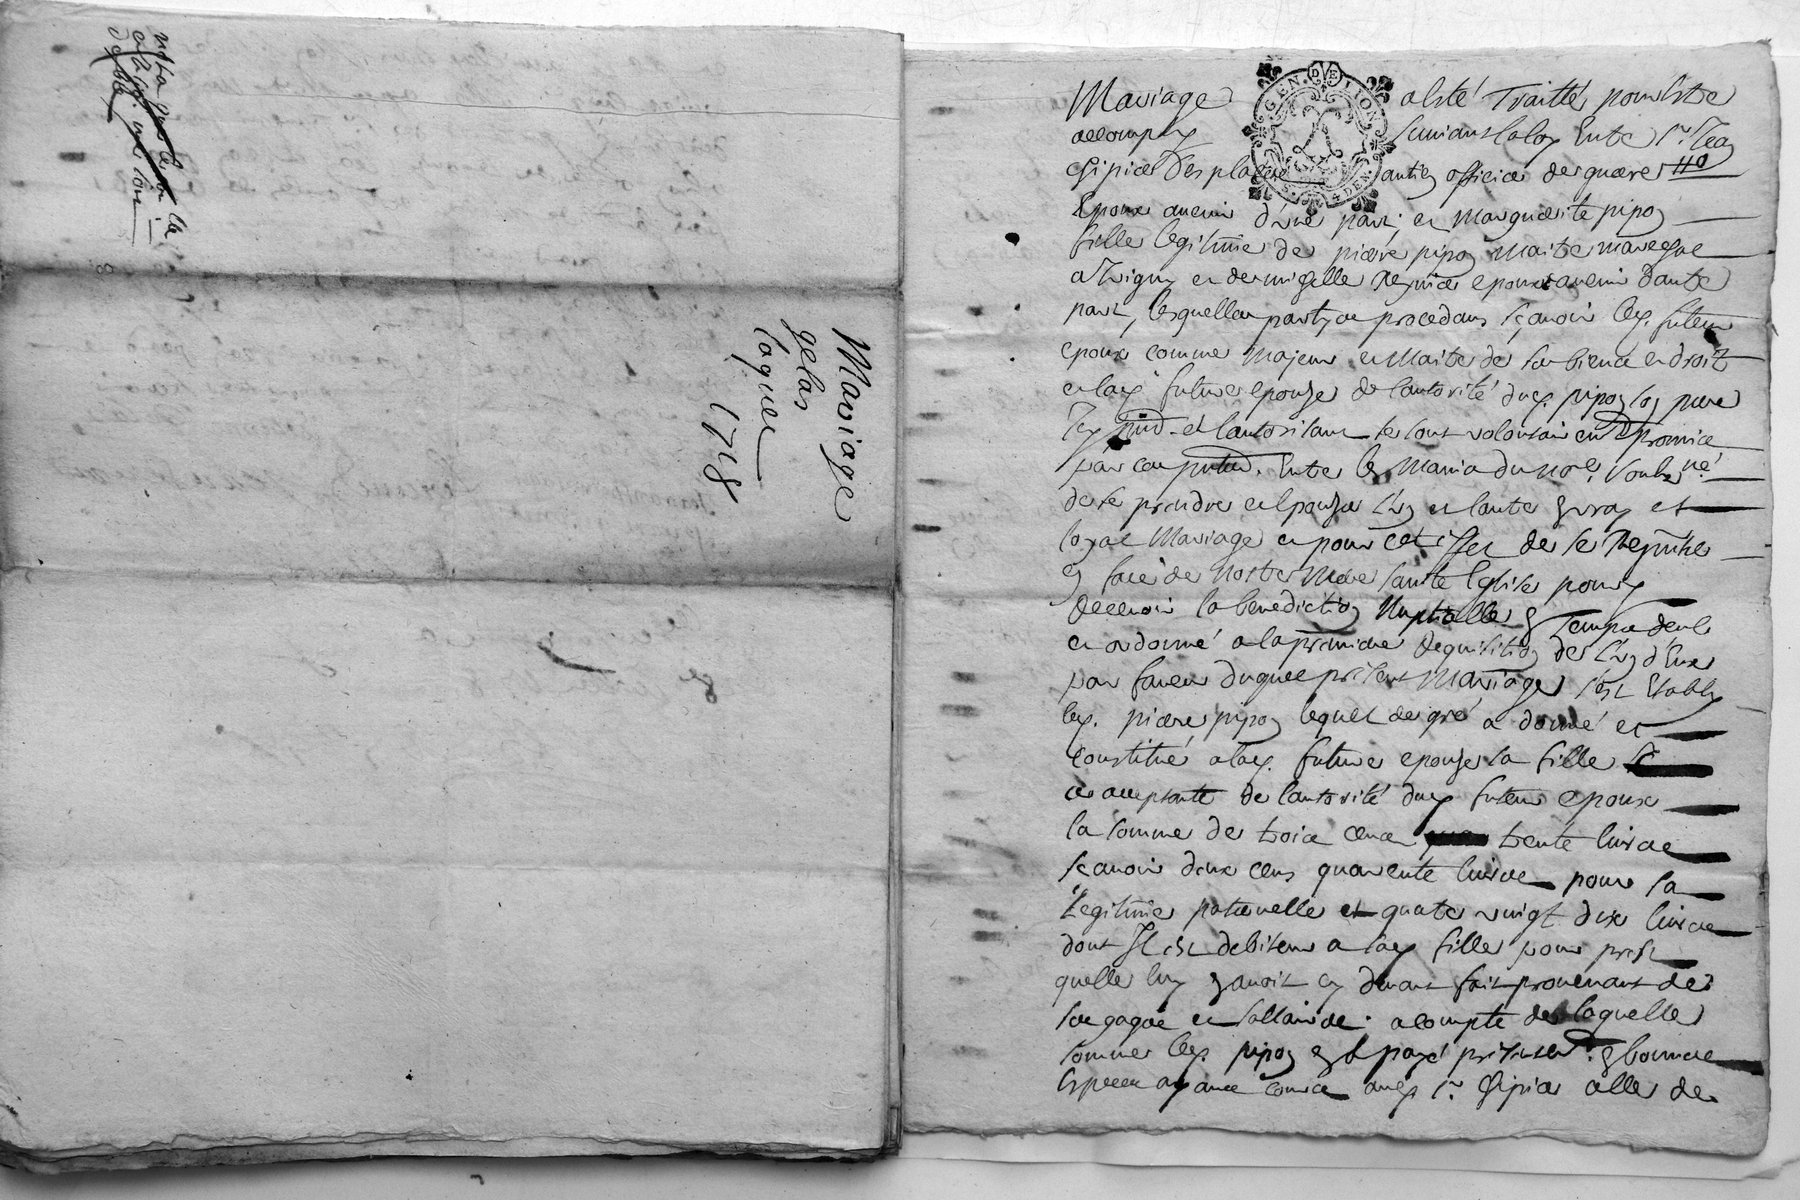 Mariage
gelas
Caquer
1718
GEN. DE LION
DEN.
Mariage a esté Traitté pour estre
accomply suivant la loy Entre Sr. Jean
Desplace antien officier de guerre
Epoux avenir d'une part, et Marguerite pipon
fille legitime de pierre pipon Maitre mareschal
a et de epouse avenir d'autre
part, lesquelles partyes procedans sçavoir led. futeur
epoux comme majeur et Maitre de ses biens et droits
et lad. future epouse de l'autorité dud. pipon son pere
icy pnt. et l'autorisant se sont volontairemt. promis
par ces pntes. Entre les Mains du nore. soubsné.
de se prendre et Epouser l'un et l'autre en vray et
loyal Mariage et pour cet effet de se presenter
en face de nostre Mere sainte Eglise pour y
recevoir la benediction Nuptialle en Temps de droit
et ordonné a la premiere requisition de l'un d'Eux
par faveur duquel present Mariage s'est Etably
led. pierre pipon lequel de gré a donné et
constitué a lad. future epouse sa fille
ce acceptante de l'autorité dud. futeur epoux
la somme de trois cens trente livres
sçavoir deux cens quarente livres pour sa
Legitime paternelle et quatre vingt dix livres
dont Il est debiteur a lad. fille pour prest
quelle luy en avoit cy devant fait provenant de
ses gages et sallaires. acompte de laquelle
somme led. pipon en a payé presentemt. en bonnes
Especes ayant cours aud. Sr. celle de